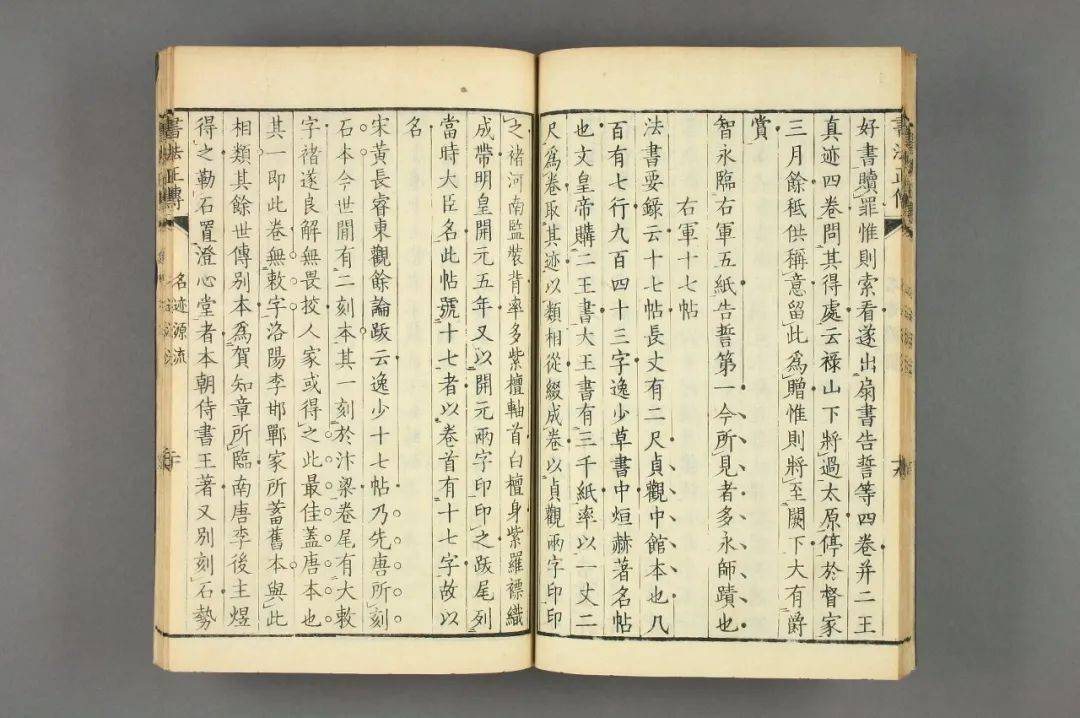 好書贖罪惟則索看遂出扇書告誓等四卷并二王
真迹四卷問其得處云祿山下將過太原停於督家
三月餘秪供稱意留此爲贈惟則將至闕下大有爵
賞
智永臨右軍五紙告誓第一今所見者多永師蹟也
右軍十七帖
法書要錄云十七帖長丈有二尺貞觀中館本也凡
百有七行九百四十三字逸少草書中烜赫著名帖
也文皇帝購二王書大王書有三千紙率以一丈二
尺爲卷取其迹以類相從綴成卷以貞觀兩字印印
之褚河南監裝背率多紫檀軸首白檀身紫羅褾織
成帶明皇開元五年又以開元兩字印印之跋尾列
當時大臣名此帖號十七者以卷首有十七字故以
名
宋黃長睿東觀餘論跋云逸少十七帖乃先唐所刻
石本今世間有二刻本其一刻於汴梁卷尾有大敕
字褚遂良解無畏挍人家或得之此最佳蓋唐本也
其一即此卷無敕字洛陽李邯鄲家所蓄舊本與此
相類其餘世傳別本爲賀知章所臨南唐李後主煜
得之勒石置澄心堂者本朝侍書王著又別刻石勢
書法正傳
名迹源流